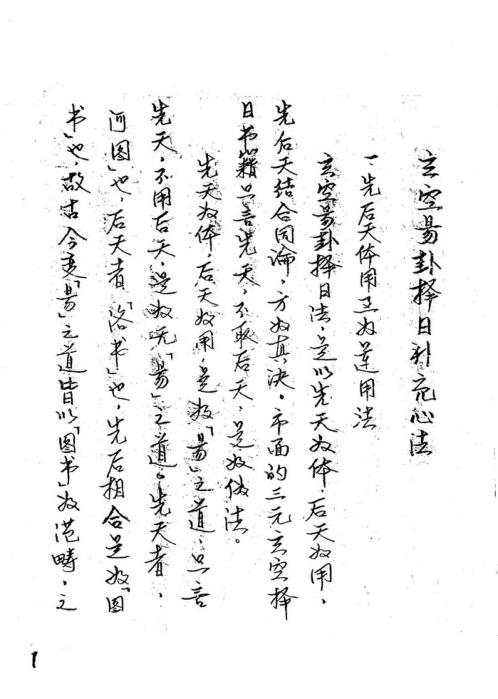 玄空易卦择日补充心法
一、先后天体用互为运用法
玄空易卦择日法，是以先天为体，后天为用，
先后天结合同论，方为真决。市面的三元玄空择
日书籍只言先天，不取后天，是为伪法。
先天为体，后天为用，是为「易」之道，只言
先天，不用后天，是为无「易」之道。先天者，
河图」也，后天者「洛书」也，先后相合是为「图
书」也，故古今变「易」之道皆以「图书」为范畴，之
1